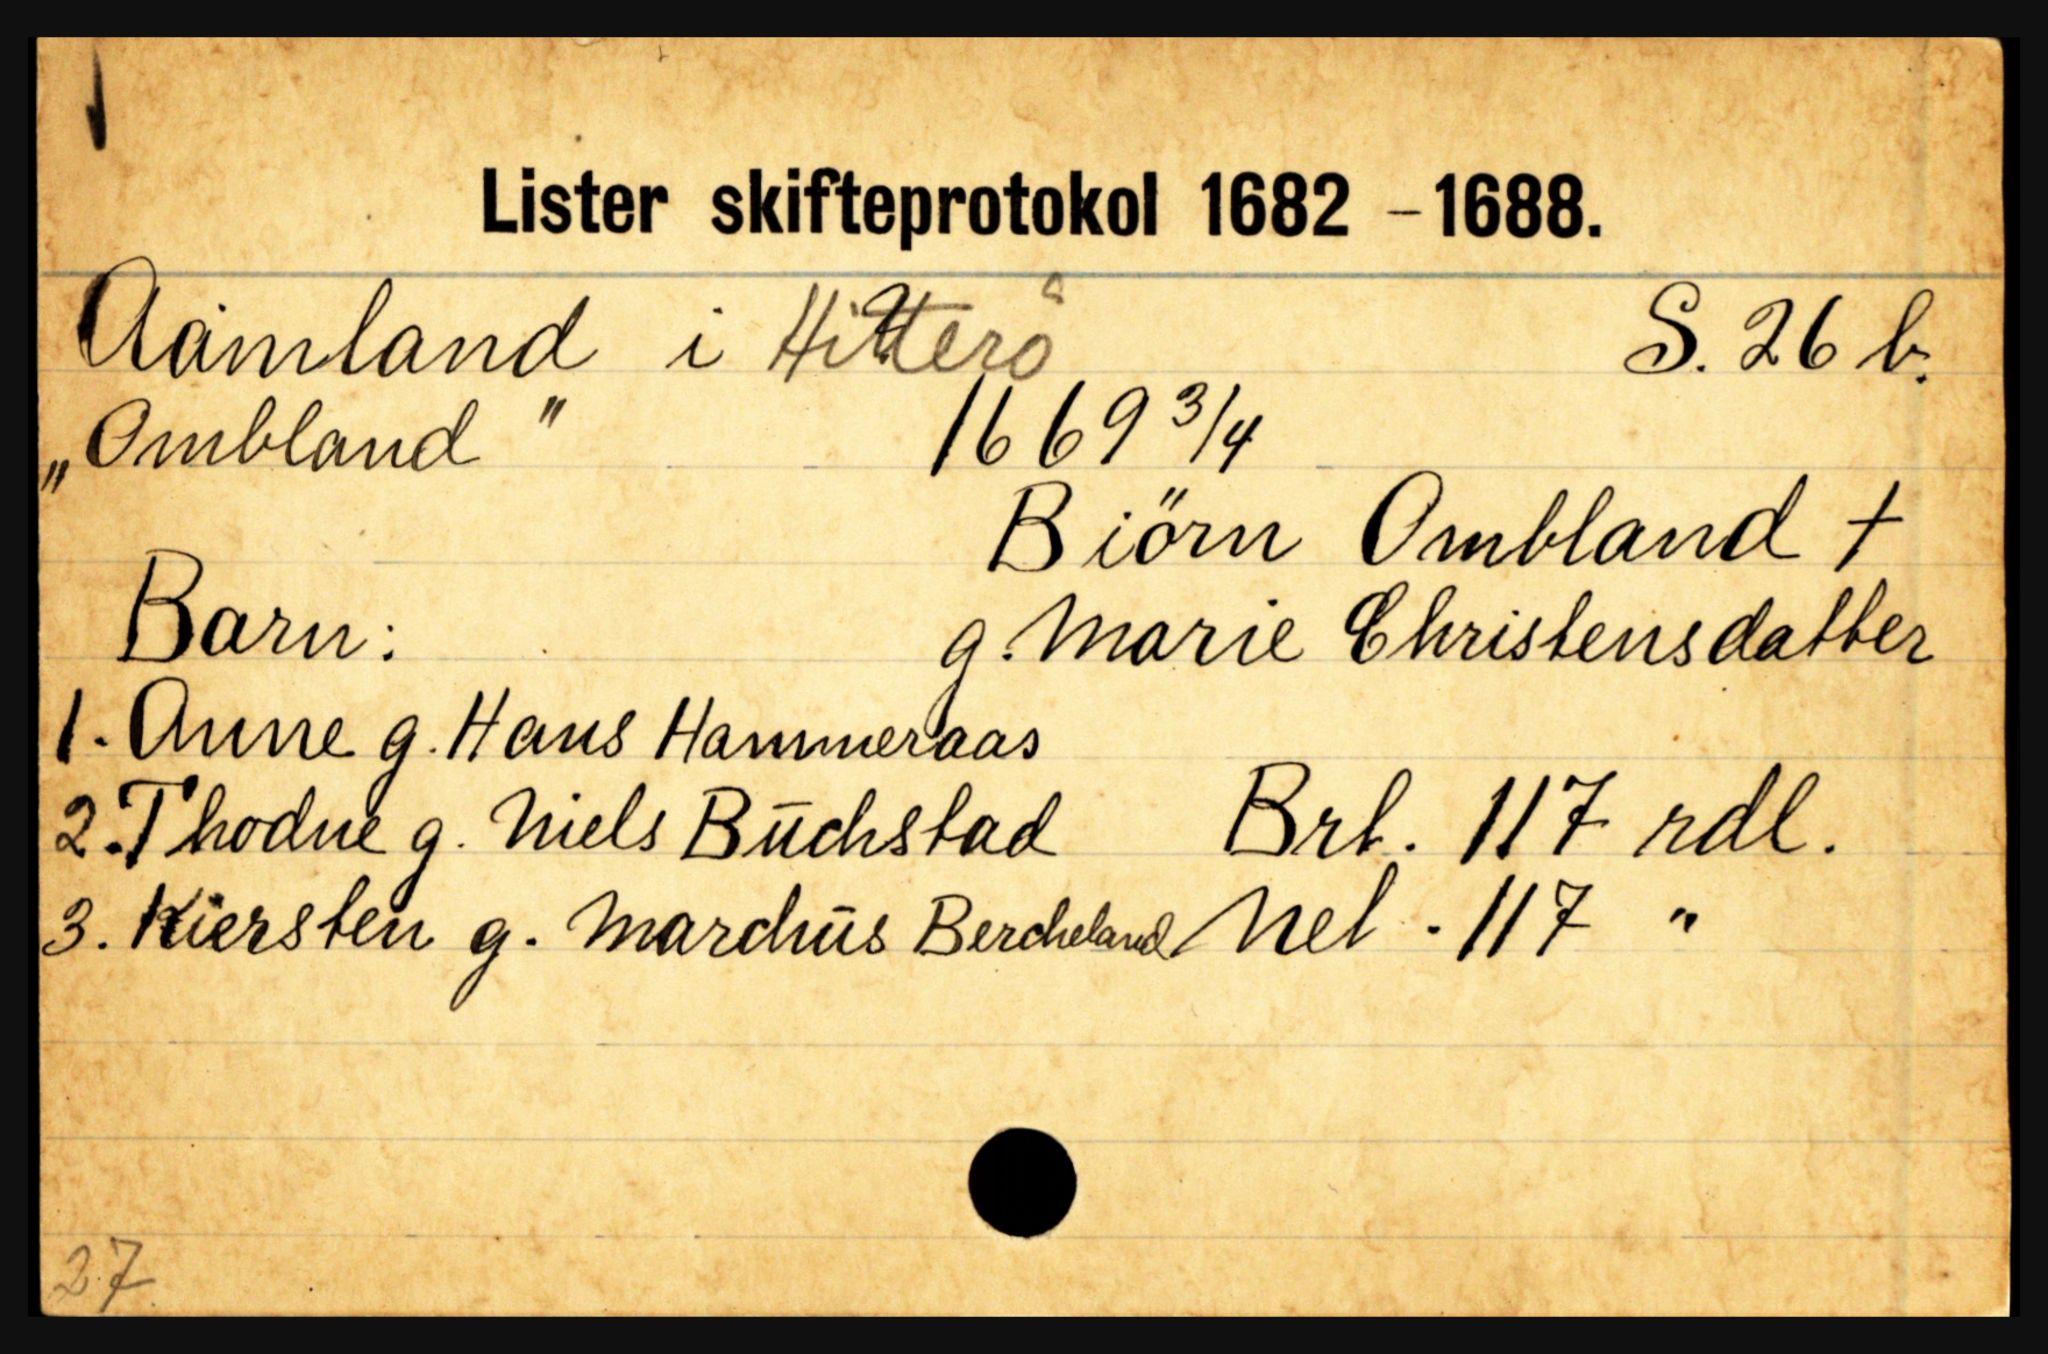 Lister skifteprotokol 1682 - 1688.
Aamland i Hitterö S. 26 b.
„Ombland" 1669 3/4
Biörn Ombland †
Barn: g. Marie Christensdatter
1. Anne g. Hans Hammeraas
2. Thodne g. Niels Būchstad Brt. 117 rdl.
3. Kiersten g. Marchūs Bercheland Net. 117 "
27